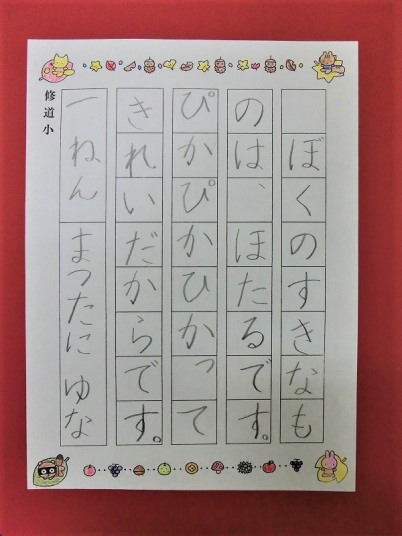 ぼくのすきなも
のは、ほたるです。
ぴかぴかひかって
きれいだからです。
一ねん まつたに ゆな
修道小